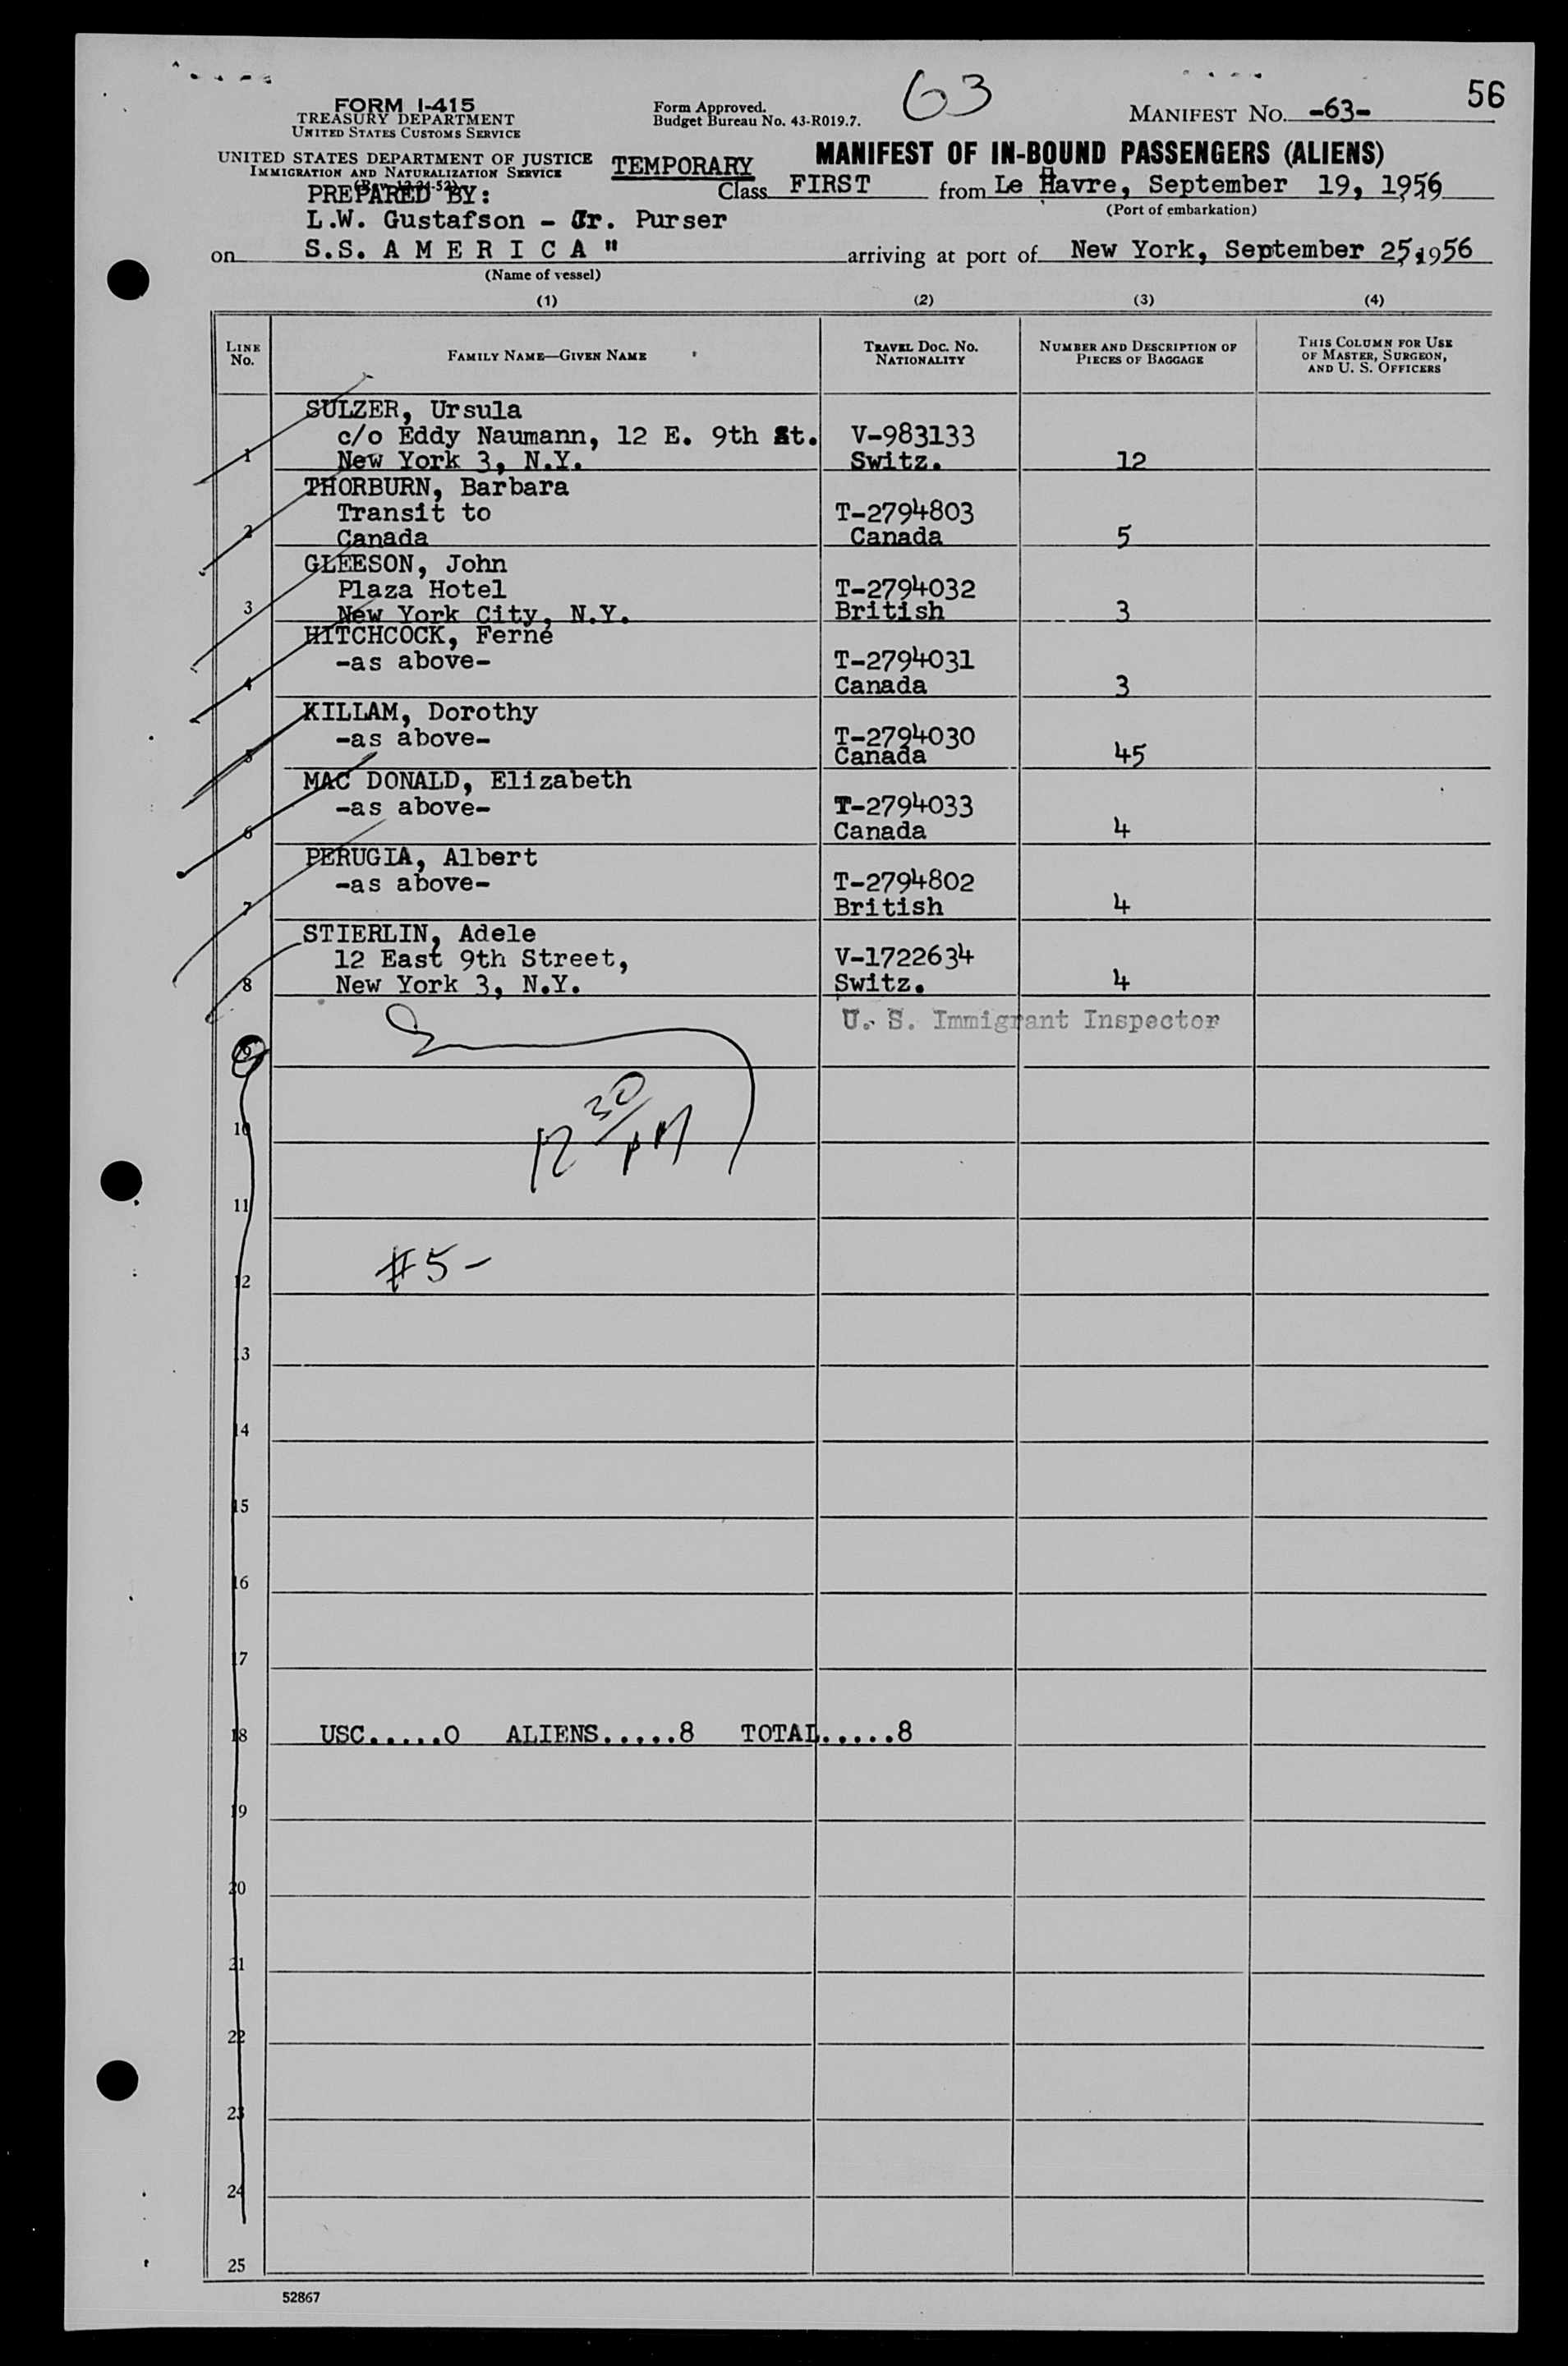 63
56
FORM I-415
TREASURY DEPARTMENT
UNITED STATES CUSTOMS SERVICE
Form Approved.
Budget Bureau No. 43-R019.7.
MANIFEST NO. -63-
UNITED STATES DEPARTMENT OF JUSTICE
IMMIGRATION AND NATURALIZATION SERVICE
(Rev. 12-24-52)
TEMPORARY
MANIFEST OF IN-BOUND PASSENGERS (ALIENS)
PREPARED BY:
Class FIRST from Le Havre, September 19, 1956
(Port of embarkation)
L.W. Gustafson - Jr. Purser
on S.S. A M E R I C A " arriving at port of New York, September 25, 1956
(Name of vessel)
(1) (2) (3) (4)
LINE No.
FAMILY NAME—GIVEN NAME
TRAVEL DOC. NO. NATIONALITY
NUMBER AND DESCRIPTION OF PIECES OF BAGGAGE
THIS COLUMN FOR USE OF MASTER, SURGEON, AND U. S. OFFICERS
SULZER, Ursula
c/o Eddy Naumann, 12 E. 9th St. V-983133
1 New York 3, N.Y. Switz. 12
THORBURN, Barbara
Transit to T-2794803
2 Canada Canada 5
GLEESON, John
Plaza Hotel T-2794032
3 New York City, N.Y. British 3
HITCHCOCK, Ferne
-as above- T-2794031
4 Canada 3
KILLAM, Dorothy
-as above- T-2794030
5 Canada 45
MAC DONALD, Elizabeth
-as above- T-2794033
6 Canada 4
PERUGIA, Albert
-as above- T-2794802
7 British 4
STIERLIN, Adele
12 East 9th Street, V-1722634
8 New York 3, N.Y. Switz. 4
U. S. Immigrant Inspector
9
10 12 30/PM
11
12 #5-
13
14
15
16
17
18 USC.....0 ALIENS.....8 TOTAL.....8
19
20
21
22
23
24
25
52867